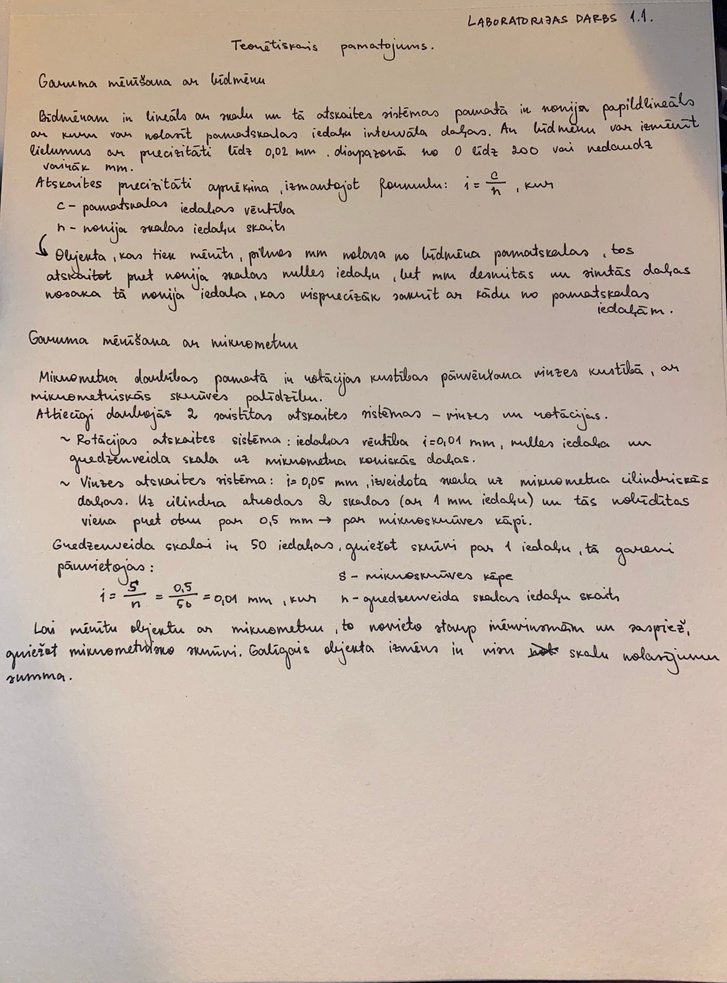 LABORATORIJAS DARBS 1.1.
Teorētiskais pamatojums.
Garuma mērīšana ar bīdmēru
Bīdmēram ir lineāls ar skalu un tā atskaites sistēmas pamatā ir nonija papildlineāls
ar kuru var nolasīt pamatskalas iedaļu intervāla daļas. Ar bīdmēru var izmērīt
lielumus ar precizitāti līdz 0,02 mm. diapazonā no 0 līdz 200 vai nedaudz
vairāk mm.
Atskaites precizitāti aprēķina, izmantojot formulu: i = c/n , kur
c - pamatskalas iedaļas vērtība
n - nonija skalas iedaļu skaits
Objekta, kas tiek mērīts, pilnos mm nolasa no bīdmēra pamatskalas, tos
atskaitot pret nonija skalas nulles iedaļu, bet mm desmitās un simtās daļas
nosaka tā nonija iedaļa, kas visprecīzāk sakrīt ar kādu no pamatskalas
iedaļām.
Garuma mērīšana ar mikrometru
Mikrometra darbības pamatā ir rotācijas kustības pārvēršana virzes kustībā, ar
mikrometriskās skrūves palīdzību.
Attiecīgi darbojās 2 saistītas atskaites sistēmas - virzes un rotācijas.
~ Rotācijas atskaites sistēma: iedaļas vērtība i=0,01 mm, nulles iedaļa un
gredzenveida skala uz mikrometra koniskās daļas.
~ Virzes atskaites sistēma: i=0,05 mm, izveidota skala uz mikrometra cilindriskās
daļas. Uz cilindra atrodas 2 skalas (ar 1 mm iedaļu) un tās nobīdītas
viena pret otru par 0,5 mm → par mikroskrūves kāpi.
Gredzenveida skalai ir 50 iedaļas, griežot skrūvi par 1 iedaļu, tā gareni
pārvietojas:
i = S/n = 0,5/50 = 0,01 mm , kur
S - mikroskrūves kāpe
n - gredzenveida skalas iedaļu skaits
Lai mērītu objektu ar mikrometru, to novieto starp mērvirsmām un saspiež,
griežot mikrometrisko skrūvi. Galīgais objekta izmērs ir visu skalu nolasījumu
summa.